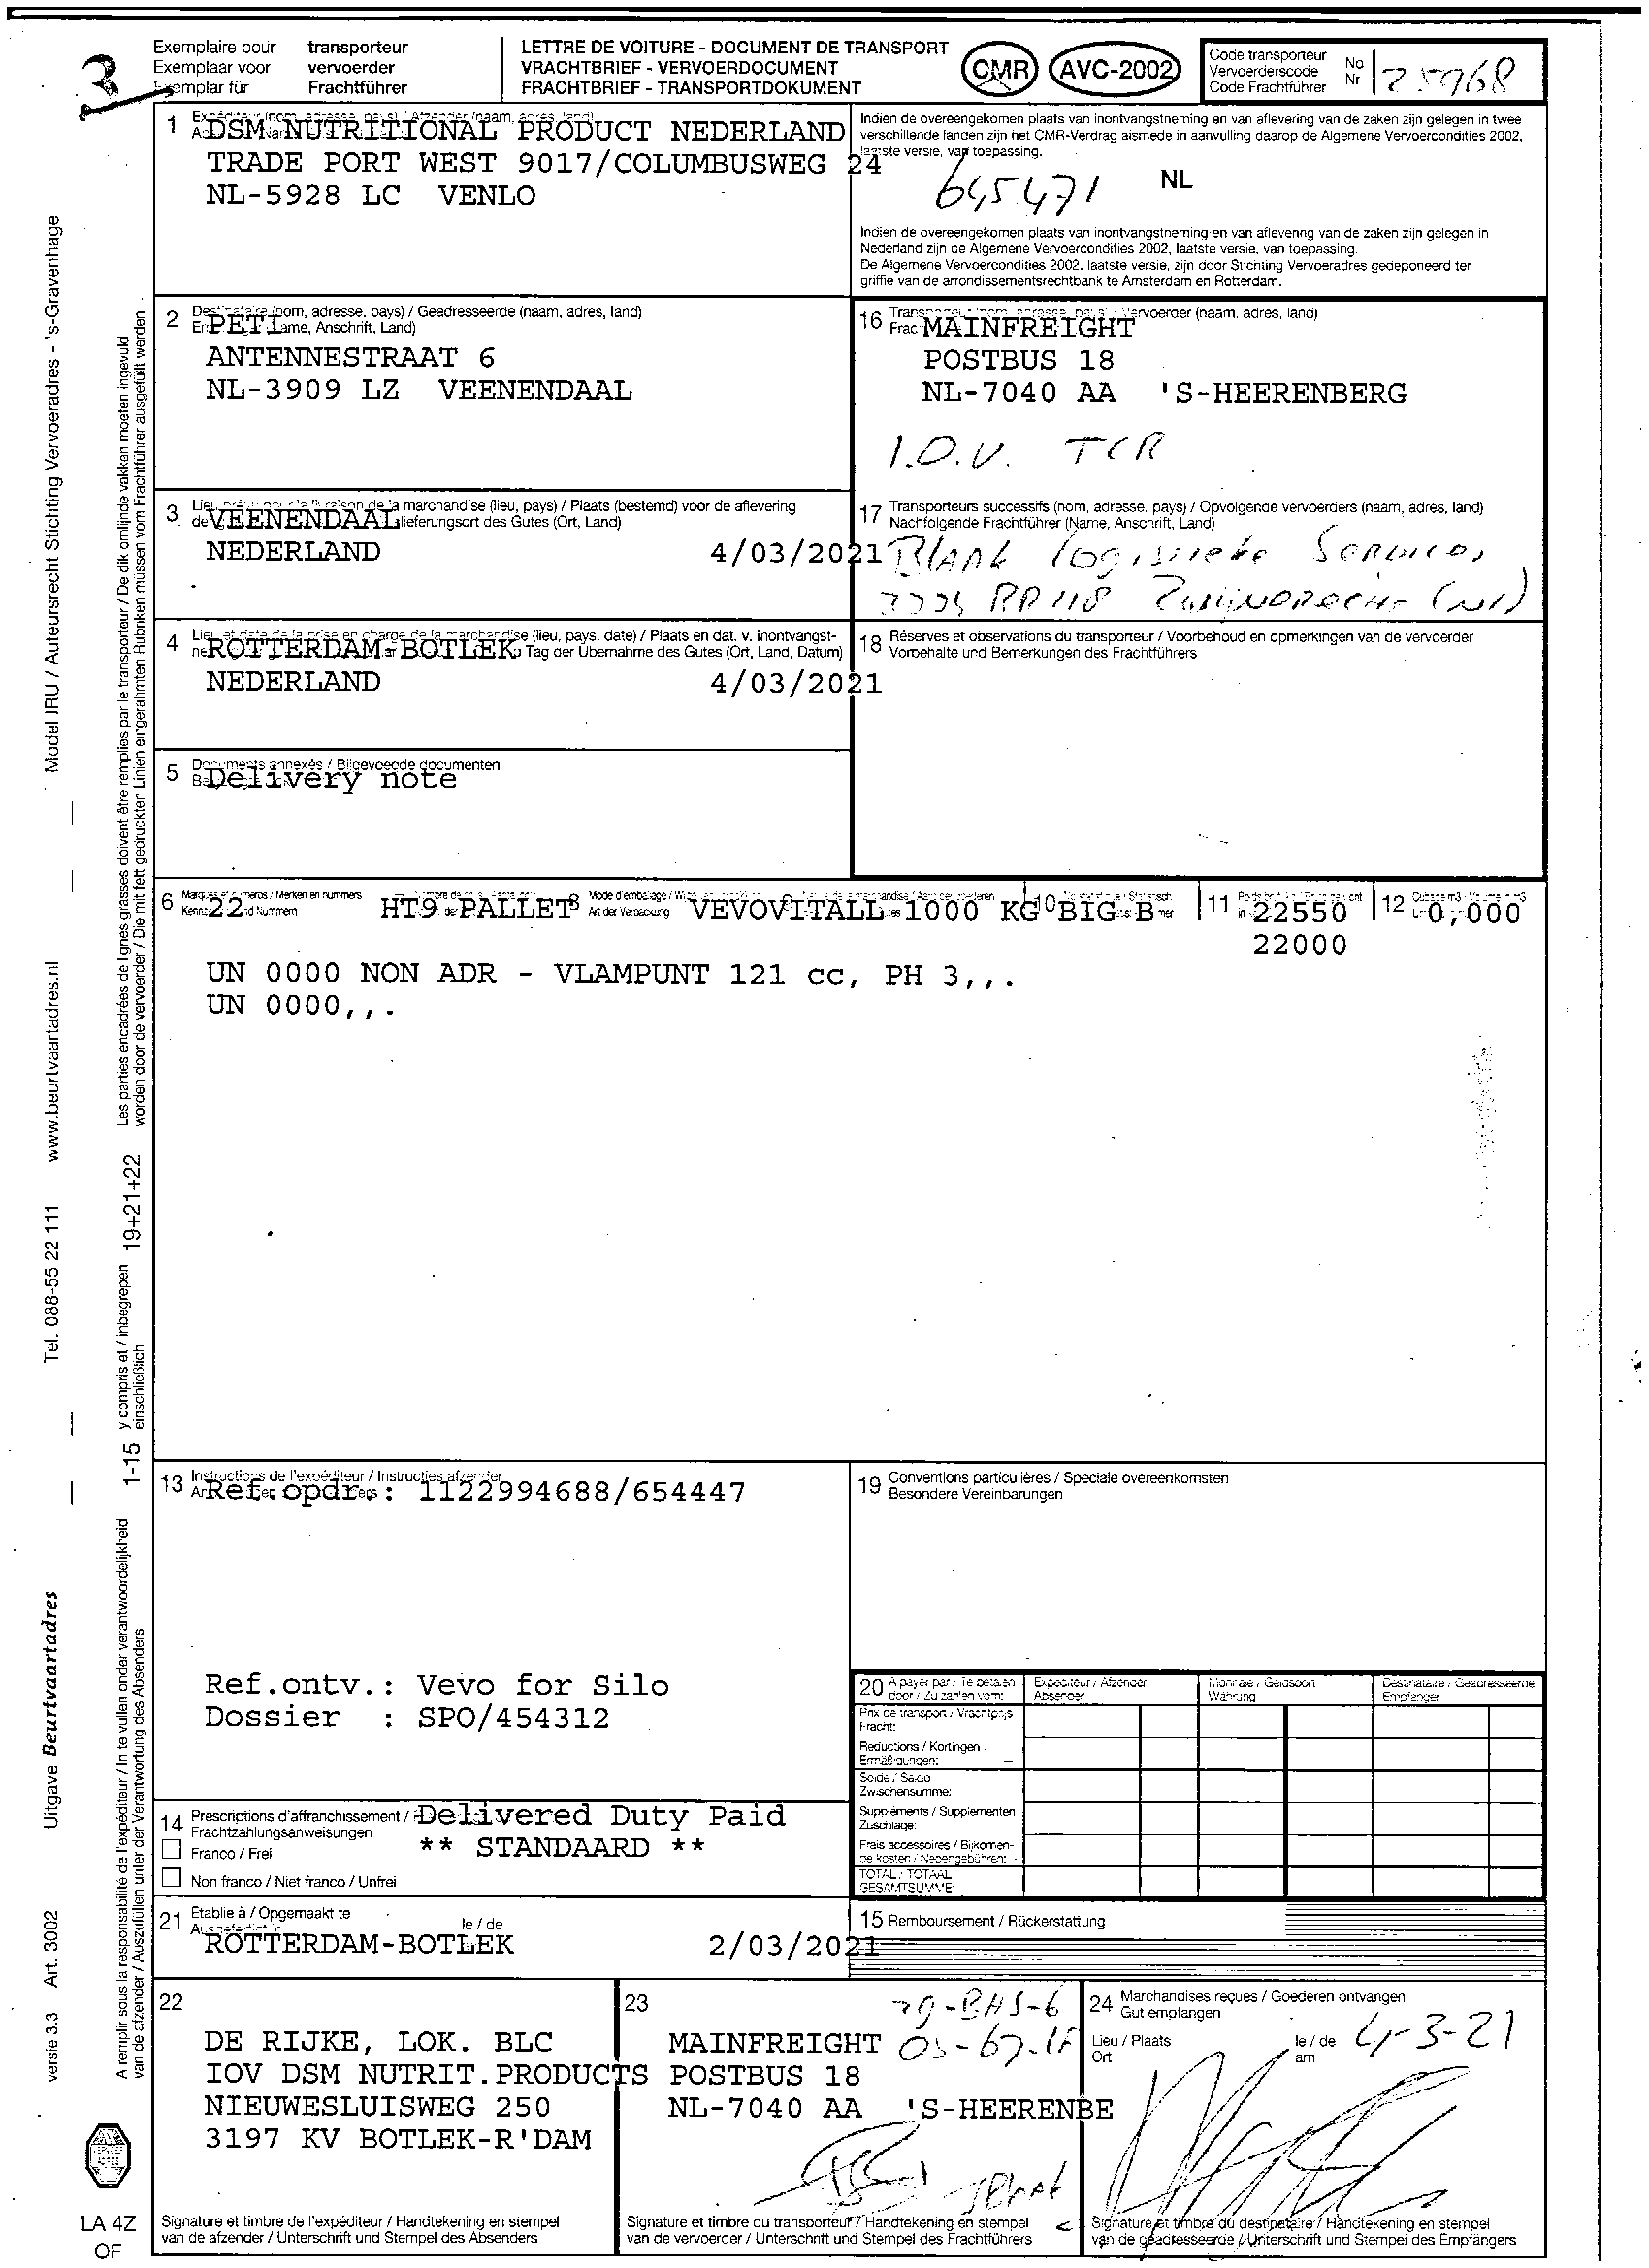 3
Exemplaire pour transporteur
Exemplaar voor vervoerder
Exemplar für Frachtführer
LETTRE DE VOITURE - DOCUMENT DE TRANSPORT
VRACHTBRIEF - VERVOERDOCUMENT
FRACHTBRIEF - TRANSPORTDOKUMENT
CMR AVC-2002
Code transporteur
Vervoerderscode
Code Frachtführer
No
Nr
1
DSM NUTRITIONAL PRODUCT NEDERLAND
TRADE PORT WEST 9017/COLUMBUSWEG 24
NL-5928 LC VENLO
Indien de overeengekomen plaats van inontvangstneming en van aflevering van de zaken zijn gelegen in twee
verschillende landen zijn het CMR-Verdrag alsmede in aanvulling daarop de Algemene Vervoercondities 2002,
laatste versie, van toepassing.
645471 NL
Indien de overeengekomen plaats van inontvangstneming en van aflevering van de zaken zijn gelegen in
Nederland zijn de Algemene Vervoercondities 2002, laatste versie, van toepassing.
De Algemene Vervoercondities 2002, laatste versie, zijn door Stichting Vervoeradres gedeponeerd ter
griffie van de arrondissementsrechtbank te Amsterdam en Rotterdam.
2 (nom, adresse, pays) / Geadresseerde (naam, adres, land)
PETI Anschrift, Land)
ANTENNESTRAAT 6
NL-3909 LZ VEENENDAAL
16 Vervoerder (naam, adres, land)
MAINFREIGHT
POSTBUS 18
NL-7040 AA 'S-HEERENBERG
I.O.V. TCR
3 la marchandise (lieu, pays) / Plaats (bestemd) voor de aflevering
VEENENDAAL des Gutes (Ort, Land)
NEDERLAND 4/03/2021
17 Transporteurs successifs (nom, adresse, pays) / Opvolgende vervoerders (naam, adres, land)
Nachfolgende Frachtführer (Name, Anschrift, Land)
Blank logistieke Services
4 (lieu, pays, date) / Plaats en dat. v. inontvangst-
ROTTERDAM-BOTLEK Tag der Übernahme des Gutes (Ort, Land, Datum)
NEDERLAND 4/03/2021
18 Réserves et observations du transporteur / Voorbehoud en opmerkingen van de vervoerder
Vorbehalte und Bemerkungen des Frachtführers
5 Documents annexés / Bijgevoegde documenten
Delivery note
6 22 HT9 PALLET 8 VEVOVITALL 1000 KG 10 BIG B 11 22550 12 0,000
22000
UN 0000 NON ADR - VLAMPUNT 121 cc, PH 3,,.
UN 0000,,.
13 Instructions de l'expéditeur / Instructies afzender
Ref.opdr.: 1122994688/654447
19 Conventions particulières / Speciale overeenkomsten
Besondere Vereinbarungen
Ref.ontv.: Vevo for Silo
Dossier : SPO/454312
20 A payer par / Te betalen
door / Zu zahlen vom:
Expéditeur / Afzender
Absender
Monnaie / Geldsoort
Währung
Destinataire / Geadresseerde
Empfänger
Prix de transport / Vrachtprijs
Fracht:
Reductions / Kortingen
Ermäßigungen: -
Solde / Saldo
Zwischensumme:
Suppléments / Supplementen
Zuschläge:
Frais accessoires / Bijkomen-
de kosten / Nebengebühren:
TOTAL / TOTAAL
GESAMTSUMME:
14 Prescriptions d'affranchissement / Delivered Duty Paid
Frachtzahlungsanweisungen
** STANDAARD **
Franco / Frei
Non franco / Niet franco / Unfrei
21 Etablie à / Opgemaakt te
le / de
ROTTERDAM-BOTLEK 2/03/2021
15 Remboursement / Rückerstattung
22
DE RIJKE, LOK. BLC
IOV DSM NUTRIT.PRODUCTS
NIEUWESLUISWEG 250
3197 KV BOTLEK-R'DAM
Signature et timbre de l'expéditeur / Handtekening en stempel
van de afzender / Unterschrift und Stempel des Absenders
23
MAINFREIGHT
POSTBUS 18
NL-7040 AA 'S-HEERENBE
Signature et timbre du transporteur / Handtekening en stempel
van de vervoerder / Unterschrift und Stempel des Frachtführers
24 Marchandises reçues / Goederen ontvangen
Gut empfangen
Lieu / Plaats
Ort
le / de
am
4-3-21
Signature et timbre du destinataire / Handtekening en stempel
van de geadresseerde / Unterschrift und Stempel des Empfängers
Model IRU / Auteursrecht Stichting Vervoeradres - 's-Gravenhage
www.beurtvaartadres.nl
Tel. 088-55 22 111
Uitgave Beurtvaartadres
Art. 3002
versie 3.3
Les parties encadrées de lignes grasses doivent être remplies par le transporteur / De dik omlijnde vakken moeten ingevuld
worden door de vervoerder / Die mit fett gedruckten Linien eingerahmten Rubriken müssen vom Frachtführer ausgefüllt werden.
1-15 y compris et / inbegrepen 19+21+22
einschließlich
A remplir sous la responsabilité de l'expéditeur / In te vullen onder verantwoordelijkheid
van de afzender / Auszufüllen unter der Verantwortung des Absenders
LA 4Z
OF